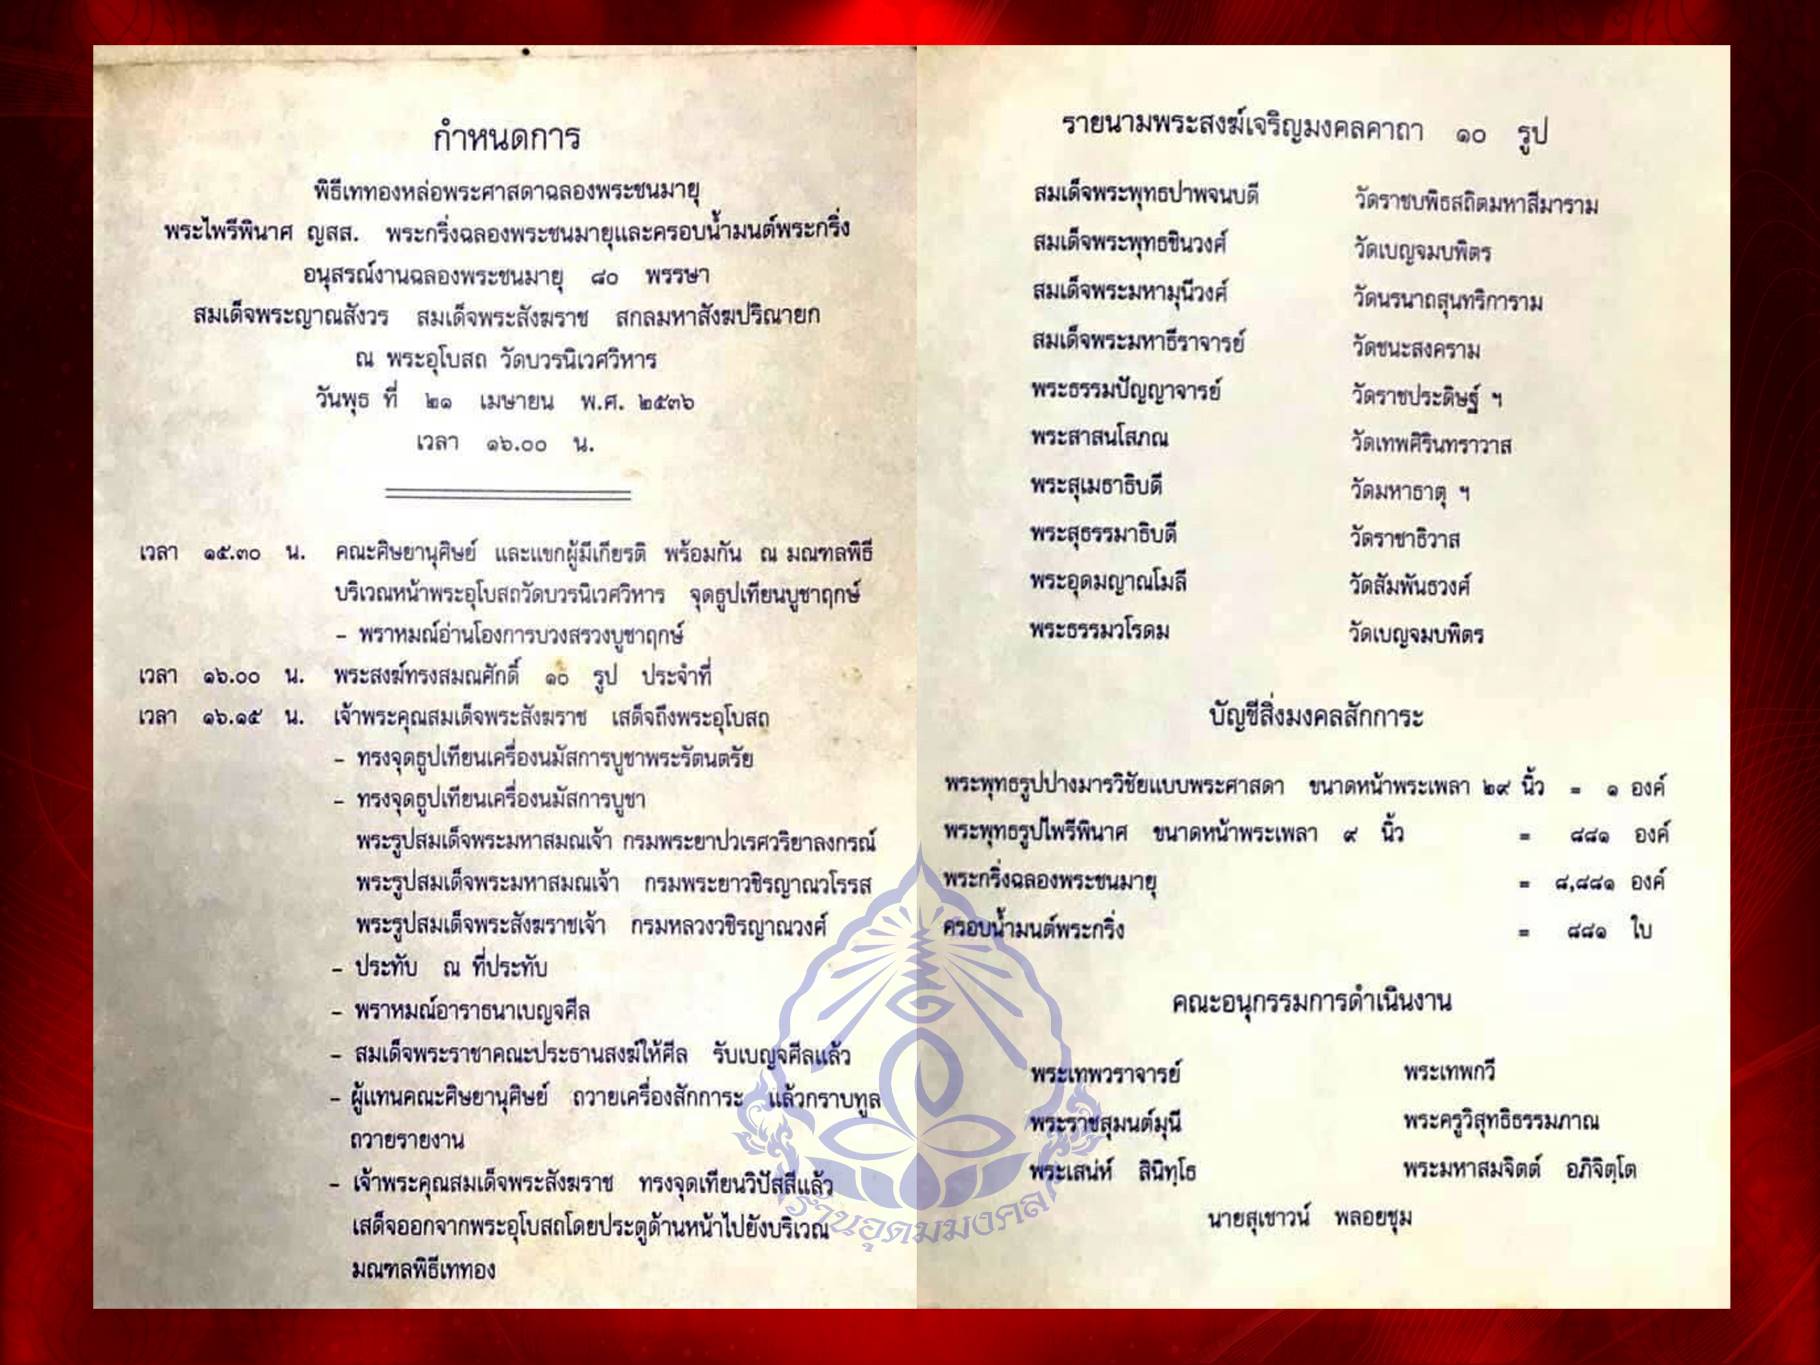 กำหนดการ
พิธีเททองหล่อพระศาสดาฉลองพระชนมายุ
พระไพรีพินาศ ญสส. พระกริ่งฉลองพระชนมายุและครอบน้ำมนต์พระกริ่ง
อนุสรณ์งานฉลองพระชนมายุ ๘๐ พรรษา
สมเด็จพระญาณสังวร สมเด็จพระสังฆราช สกลมหาสังฆปริณายก
ณ พระอุโบสถ วัดบวรนิเวศวิหาร
วันพุธ ที่ ๒๑ เมษายน พ.ศ. ๒๕๓๖
เวลา ๑๖.๐๐ น.
เวลา ๑๕.๓๐ น. คณะศิษยานุศิษย์ และแขกผู้มีเกียรติ พร้อมกัน ณ มณฑลพิธี
บริเวณหน้าพระอุโบสถวัดบวรนิเวศวิหาร จุดธูปเทียนบูชาฤกษ์
- พราหมณ์อ่านโองการบวงสรวงบูชาฤกษ์
เวลา ๑๖.๐๐ น. พระสงฆ์ทรงสมณศักดิ์ ๑๐ รูป ประจำที่
เวลา ๑๖.๑๕ น. เจ้าพระคุณสมเด็จพระสังฆราช เสด็จถึงพระอุโบสถ
- ทรงจุดธูปเทียนเครื่องนมัสการบูชาพระรัตนตรัย
- ทรงจุดธูปเทียนเครื่องนมัสการบูชา
พระรูปสมเด็จพระมหาสมณเจ้า กรมพระยาปวเรศวริยาลงกรณ์
พระรูปสมเด็จพระมหาสมณเจ้า กรมพระยาวชิรญาณวโรรส
พระรูปสมเด็จพระสังฆราชเจ้า กรมหลวงวชิรญาณวงศ์
- ประทับ ณ ที่ประทับ
- พราหมณ์อาราธนาเบญจศีล
- สมเด็จพระราชาคณะประธานสงฆ์ให้ศีล รับเบญจศีลแล้ว
- ผู้แทนคณะศิษยานุศิษย์ ถวายเครื่องสักการะ แล้วกราบทูล
ถวายรายงาน
- เจ้าพระคุณสมเด็จพระสังฆราช ทรงจุดเทียนวิปัสสีแล้ว
เสด็จออกจากพระอุโบสถโดยประตูด้านหน้าไปยังบริเวณ
มณฑลพิธีเททอง
รายนามพระสงฆ์เจริญมงคลคาถา ๑๐ รูป
สมเด็จพระพุทธปาพจนบดี วัดราชบพิธสถิตมหาสีมาราม
สมเด็จพระพุทธชินวงศ์ วัดเบญจมบพิตร
สมเด็จพระมหามุนีวงศ์ วัดนรนาถสุนทริการาม
สมเด็จพระมหาธีราจารย์ วัดชนะสงคราม
พระธรรมปัญญาจารย์ วัดราชประดิษฐ์ ฯ
พระสาสนโสภณ วัดเทพศิรินทราวาส
พระสุเมธาธิบดี วัดมหาธาตุ ฯ
พระสุธรรมาธิบดี วัดราชาธิวาส
พระอุดมญาณโมลี วัดสัมพันธวงศ์
พระธรรมวโรดม วัดเบญจมบพิตร
บัญชีสิ่งมงคลสักการะ
พระพุทธรูปปางมารวิชัยแบบพระศาสดา ขนาดหน้าพระเพลา ๒๙ นิ้ว = ๑ องค์
พระพุทธรูปไพรีพินาศ ขนาดหน้าพระเพลา ๙ นิ้ว = ๘๘๑ องค์
พระกริ่งฉลองพระชนมายุ = ๘,๘๘๑ องค์
ครอบน้ำมนต์พระกริ่ง = ๘๘๑ ใบ
คณะอนุกรรมการดำเนินงาน
พระเทพวราจารย์ พระเทพกวี
พระราชสุมนต์มุนี พระครูวิสุทธิธรรมภาณ
พระเสน่ห์ สินิทฺโธ พระมหาสมจิตต์ อภิจิตฺโต
นายสุเชาวน์ พลอยชุม
ร้านอุดมมงคล